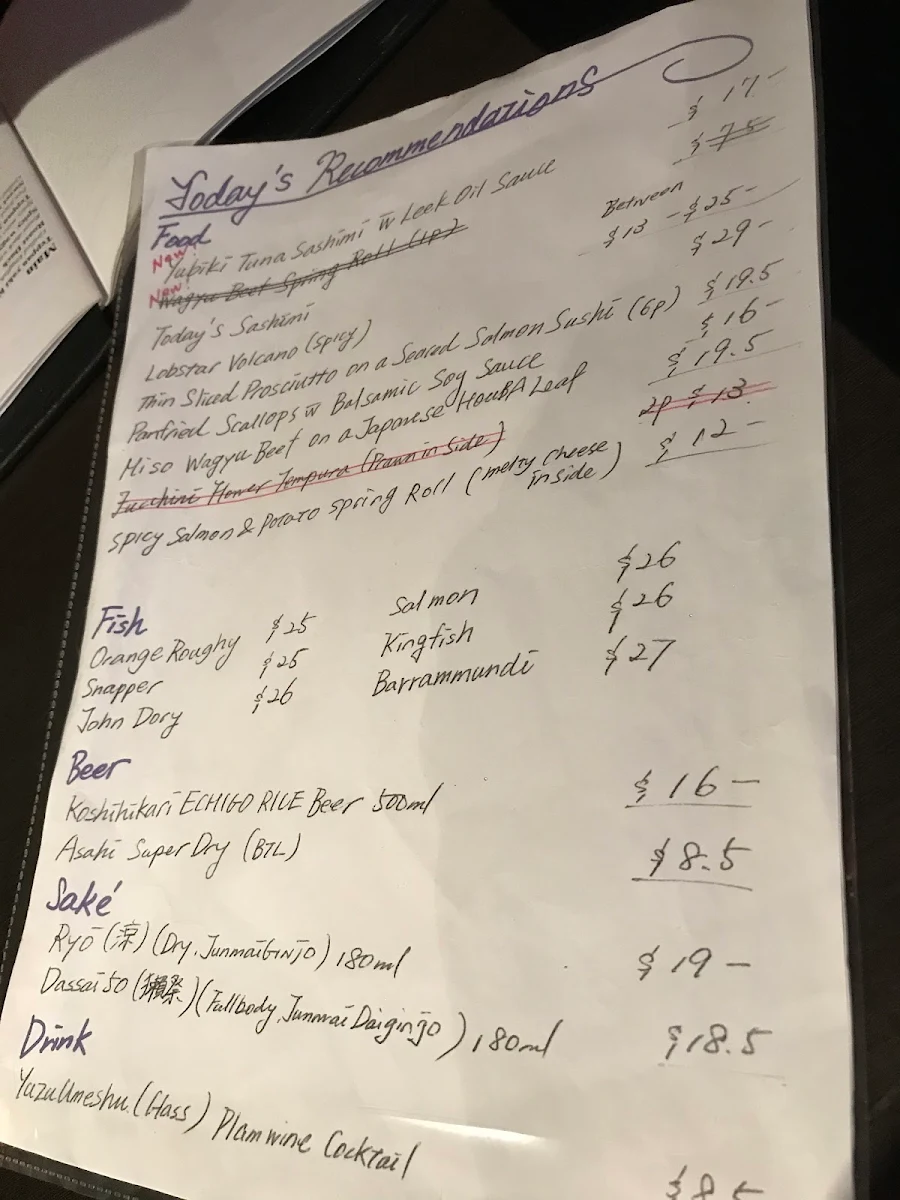 Today's Recommendations
Food
New! Yubiki Tuna Sashimi w Leek Oil Sauce $17-
New! Wagyu Beef Spring Roll (1P)
Today's Sashimi Between $13 - $25-
Lobstar Volcano (spicy) $29-
Thin Sliced Prosciutto on a Seared Salmon Sushi (6p) $19.5
Panfried Scallops w Balsamic Soy Sauce $16-
Miso Wagyu Beef on a Japanese HOUBA Leaf $19.5
Zucchini Flower Tempura (Prawn in Side) 2p $13
Spicy Salmon & Potato Spring Roll (melty cheese inside) $12-
Fish
Orange Roughy $25 Salmon $26
Snapper $25 Kingfish $26
John Dory $26 Barrammundi $27
Beer
Koshihikari ECHIGO RICE Beer 500ml $16-
Asahi Super Dry (BTL) $8.5
Saké
Ryō (涼) (Dry, Junmai Ginjo) 180ml $19-
Dassai 50 (獺祭) (Fullbody, Junmai Daiginjo) 180ml $18.5
Drink
Yuzu Umeshu (Glass) Plamwine Cocktail